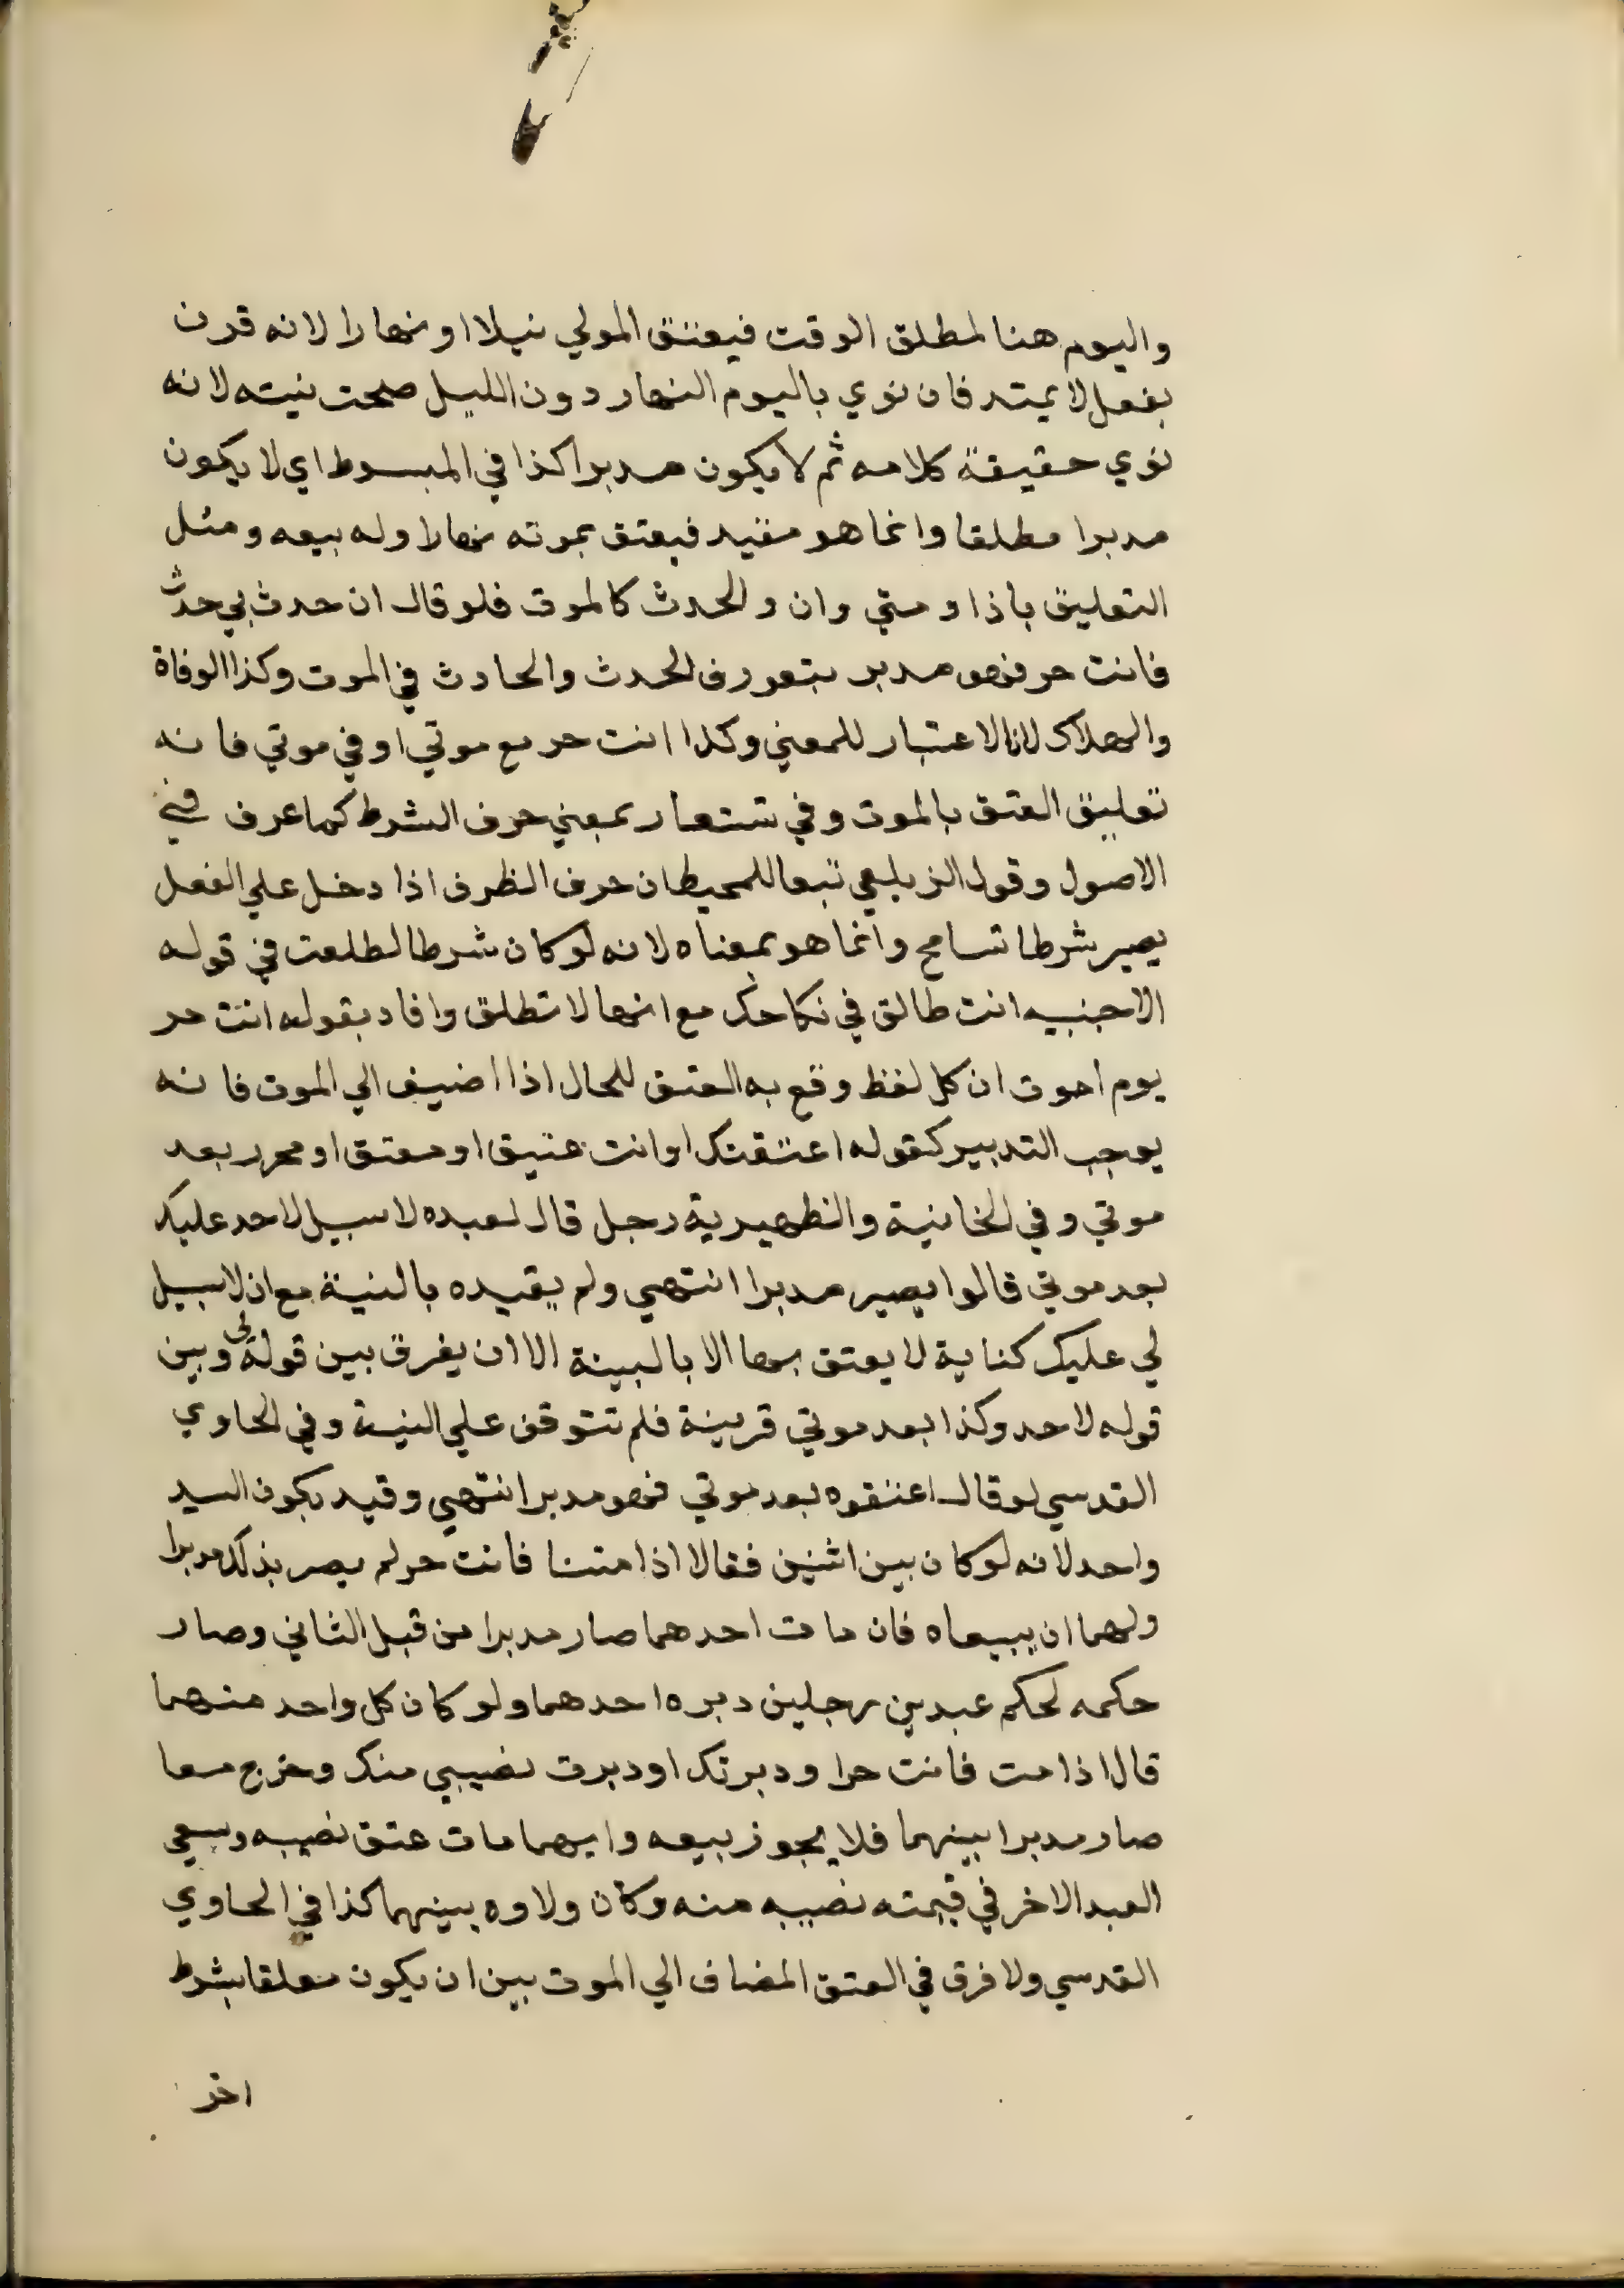 واليوم هنا لمطلق الوقت فيعتق المولي ليلا او نهارا لانه قرن
بفعل لا يمتد فان نوي باليوم النهار دون الليل صحت نيته لانه
نوي حقيقة كلامه ثم لا يكون مدبرا كذا في المبسوط اي لا يكون
مدبرا مطلقا وانما هو مقيد فيعتق بموته نهارا وله بيعه ومثل
التعليق باذا ومتي وان والحدث كالموت فلو قال ان حدث بي حدث
فانت حر فهو مدبر بتعورف الحدث والحادث في الموت وكذا الوفاة
والهلاك لان الاعتبار للمعني وكذا انت حر مع موتي او في موتي فانه
تعليق العتق بالموت وفي تستعار بمعني حرف الشرط كما عرف في
الاصول وقول الزيلعي تبعا للمحيط ان حرف الظرف اذا دخل علي الفعل
يصير شرطا تسامح وانما هو بمعناه لانه لو كان شرطا لطلعت في قوله
الاجنبيه انت طالق في نكاحك مع انها لا تطلق وافاد بقوله انت حر
يوم اموت ان كل لفظ وقع به العتق للحال اذا اضيف الي الموت فانه
يوجب التدبير كقوله اعتقتك او انت عتيق او معتق او محرر بعد
موتي وفي الخانية والظهيرية رجل قال لعبده لا سبيل لاحد عليك
بعد موتي قالوا يصير مدبرا انتهي ولم يقيده بالنية مع ان لا سبيل
لي عليك كناية لا يعتق بها الا بالبينة الا ان يفرق بين قوله لي وبين
قوله لاحد وكذا بعد موتي قرينة فلم تتوقف علي النية وفي الحاوي
القدسي لو قال اعتقوه بعد موتي فهو مدبر انتهي وقيد بكون السيد
واحد لانه لو كان بين اثنين فقالا اذا متنا فانت حر لم يصر بذلك مدبرا
ولهما ان يبيعاه فان مات احدهما صار مدبرا من قبل الثاني وصار
حكمه لحكم عبد بين رجلين دبره احدهما ولو كان كل واحد منهما
قال اذا مت فانت حر او دبرتك او دبرت نصيبي منك وخرج معا
صار مدبرا بينهما فلا يجوز بيعه وايهما مات عتق نصيبه وسعي
العبد الاخر في قيمته نصيبه منه وكان ولاوه بينهما كذا في الحاوي
القدسي ولا فرق في العتق المضاف الي الموت بين ان يكون معلقا بشرط
اخر